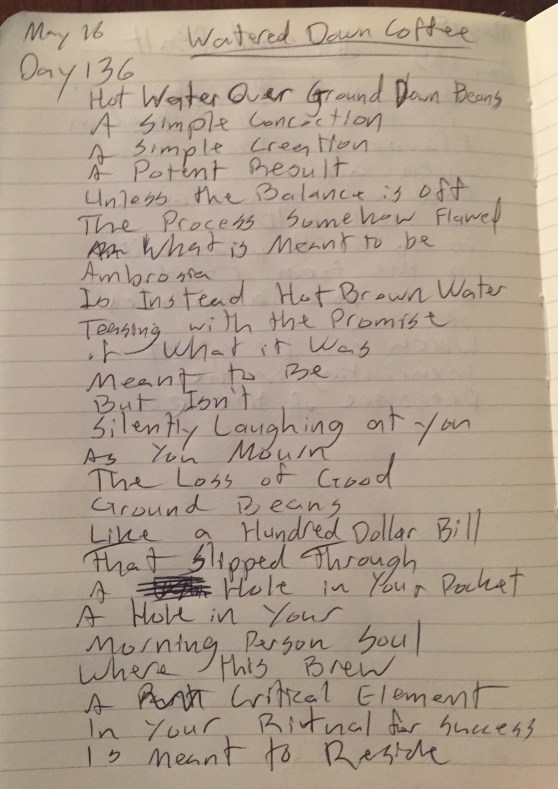 May 26
Watered Down Coffee
Day 136
Hot Water Over Ground Down Beans
A Simple Concoction
A Simple Creation
A Potent Result
Unless the Balance is off
The Process Somehow Flawed
What is Meant to be
Ambrosia
Is Instead Hot Brown Water
Teasing with the Promise
of What it Was
Meant to Be
But Isn't
Silently Laughing at you
As You Mourn
The Loss of Good
Ground Beans
Like a Hundred Dollar Bill
That Slipped Through
A Hole in Your Pocket
A Hole in Your
Morning Person Soul
Where this Brew
A Critical Element
In Your Ritual for Success
Is Meant to Reside